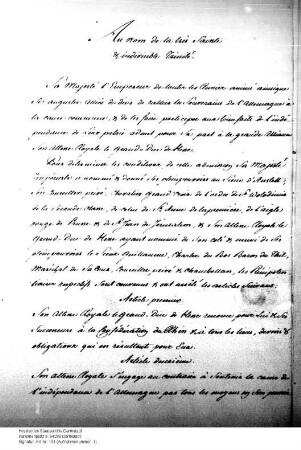 Au nom de la très Sainte
& indivisible Trinité.
Sa Majesté l'Empereur de toutes les Russies animé ainsi que
Ses augustes Alliés du désir de rallier les Souverains de l'Allemagne à la
cause commune, & de les faire participer aux bienfaits de l'indé
pendance de Leur patrie admet pour Sa part à la grande Alliance
Son Altesse Royale le Grand-Duc de Hesse.
Pour déterminer les conditions de cette admission Sa Majesté
Impériale a nommé & donné Ses pleinpouvoirs au Sieur d'Anstett
Son Conseiller privé, Chevalier Grand Croix de l'ordre de St Wolodimir
de la seconde classe, de celui de Ste Anne de la première, de l'aigle
rouge de Prusse & de St Jean de Jérusalem, & Son Altesse Royale le
Grand-Duc de Hesse ayant nommé de Son coté & muni de Ses
pleinpouvoirs le Sieur Guillaume, Charles du Bos Baron du Thil
Conseiller privé & Chambellan, les Plénipoten
tiaires respectifs sont convenus & ont arrêté les articles suivans.
Article premier
Son Altesse Royale le Grand-Duc de Hesse renonce pour Soi & Ses
Successeurs à la Confédération du Rhin & à tous les liens, devoirs &
obligations qui en résultent pour Eux.
Article deuxième
Son Altesse Royale s'engage au contraire à soutenir la cause de
l'indépendance de l'Allemagne par tous les moyens en Son pouvoir
Hessisches Staatsarchiv Darmstadt
Karolinenplatz 3, 64289 Darmstadt